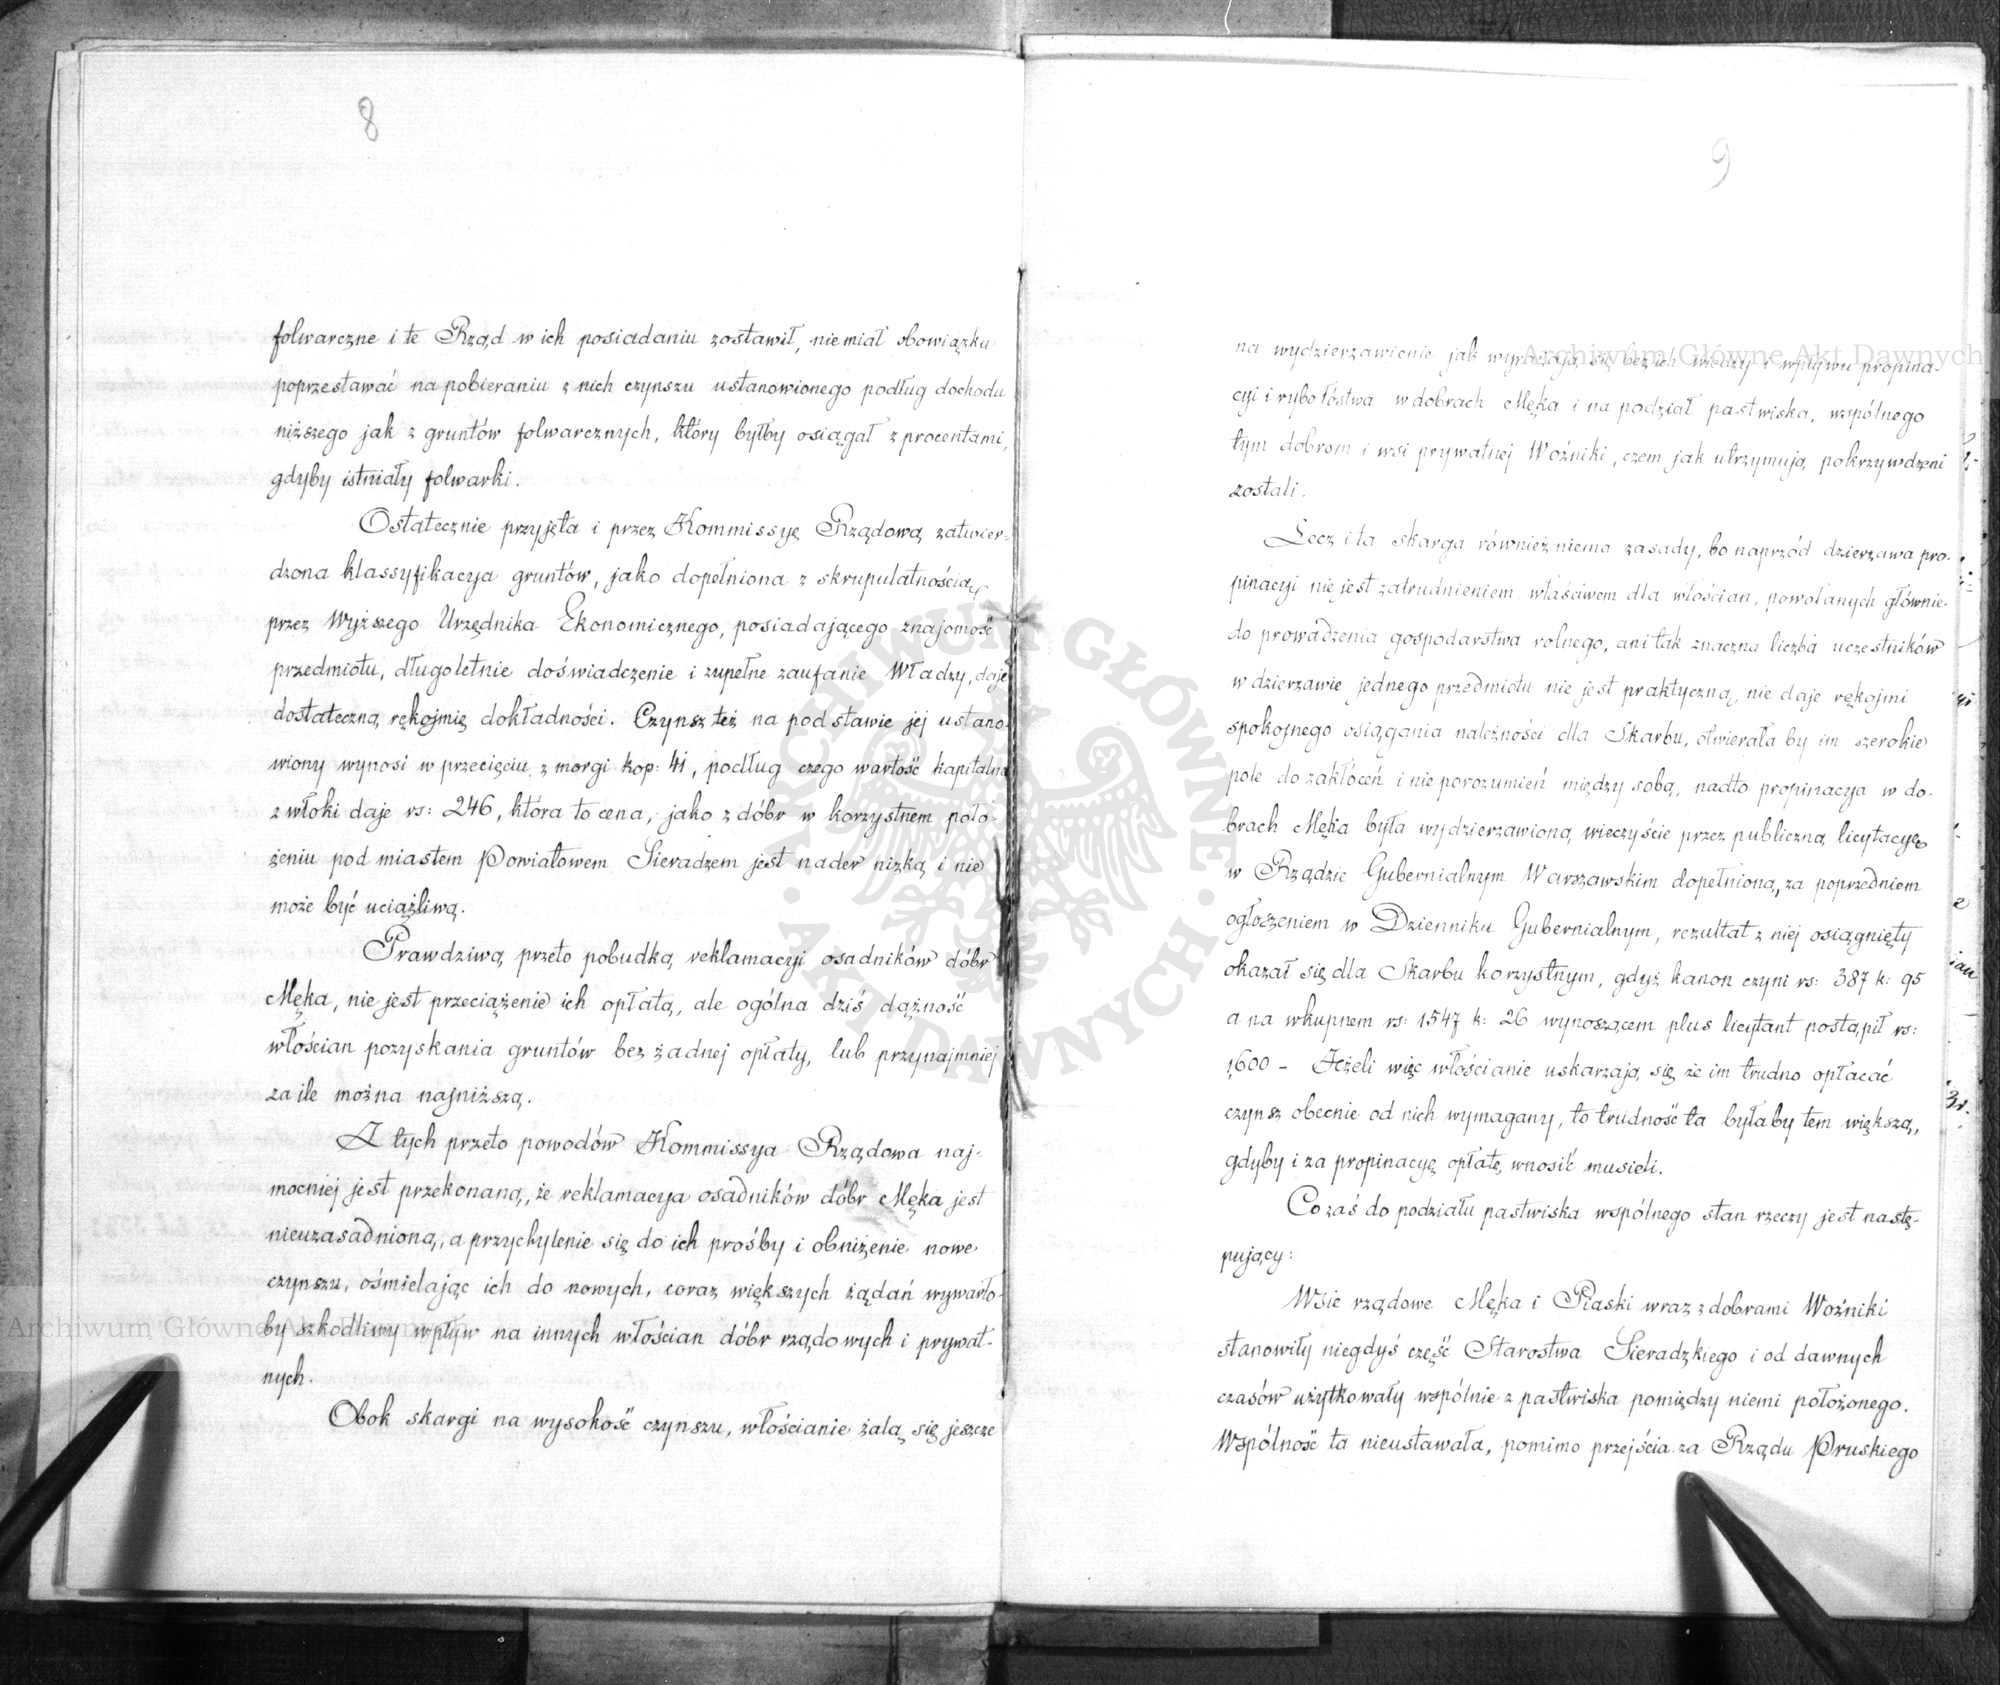 8
folwarczne i te Rząd w ich posiadaniu zostawił, nie miał obowiązku
poprzestawać na pobieraniu z nich czynszu ustanowionego podług dochodu
niższego jak z gruntów folwarcznych, który byłby osiągał z procentami,
gdyby istniały folwarki.
Ostatecznie przyjęta i przez Kommissyę Rządową zatwier-
dzona klassyfikacya gruntów, jako dopełniona z skrupulatnością
przez Wyższego Urzędnika Ekonomicznego, posiadającego znajomość
przedmiotu, długoletnie doświadczenie i zupełne zaufanie Władzy, daje
dostateczną rękojmię dokładności. Czynsz też na podstawie jej ustano-
wiony wynosi w przecięciu z morgi kop: 41, podług czego wartość kapitalna
z włoki daje rs: 246, która to cena, jako z dóbr w korzystnem poło-
żeniu pod miastem Powiatowem Sieradzem jest nader nizką i nie
może być uciążliwą.
Prawdziwą przeto pobudką reklamacyi osadników dóbr
Męka, nie jest przeciążenie ich opłatą, ale ogólna dziś dążność
włościan pozyskania gruntów bez żadnej opłaty, lub przynajmniej
za ile można najniższą.
Z tych przeto powodów Kommissya Rządowa naj-
mocniej jest przekonaną, że reklamacya osadników dóbr Męka jest
nieuzasadnioną, a przychylenie się do ich prośby i obniżenie nowe
czynszu, ośmielając ich do nowych, coraz większych żądań wywarło-
by szkodliwy wpływ na innych włościan dóbr rządowych i prywat-
nych.
Obok skargi na wysokość czynszu, włościanie żalą się jeszcze
9
na wydzierzawienie jak wyrażają się bez ich wiedzy i wpływu propina-
cyi i rybołóstwa w dobrach Męka i na podział pastwiska, wspólnego
tym dobrom i wsi prywatnej Woźniki, czem jak utrzymują pokrzywdzeni
zostali.
Lecz i ta skarga również niema zasady, bo naprzód dzierzawa pro-
pinacyi nie jest zatrudnieniem właściwem dla włościan, powołanych głównie
do prowadzenia gospodarstwa rolnego, ani tak znaczna liczba uczestników
w dzierzawie jednego przedmiotu nie jest praktyczną, nie daje rękojmi
spokojnego osiągania należności dla Skarbu, otwierała by im szerokie
pole do zakłóceń i nieporozumień między sobą, nadto propinacya w do-
brach Męka była wydzierzawioną wieczyście przez publiczną licytacyę
w Rządzie Gubernialnym Warszawskim dopełnioną, za poprzedniem
ogłoszeniem w Dzienniku Gubernialnym, rezultat z niej osiągnięty
okazał się dla Skarbu korzystnym, gdyż kanon czyni rs: 387 k: 95
a na wkupnem rs: 1547 k: 26 wynoszącem plus licytant postąpił rs:
1600 – Jeżeli więc włościanie uskarzają się że im trudno opłacać
czynsz obecnie od nich wymagany, to trudność ta byłaby tem większą,
gdyby i za propinacyę opłatę wnosić musieli.
Co zaś do podziału pastwiska wspólnego stan rzeczy jest nastę-
pujący:
Wsie rządowe Męka i Piaski wraz z dobrami Woźniki
stanowiły niegdyś część Starostwa Sieradzkiego i od dawnych
czasów użytkowały wspólnie z pastwiska pomiędzy niemi położonego.
Wspólność ta nieustawała, pomimo przejścia za Rządu Pruskiego
Archiwum Główne Akt Dawnych
Archiwum Główne Akt Dawnych
ARCHIWUM GŁÓWNE · AKT DAWNYCH ·